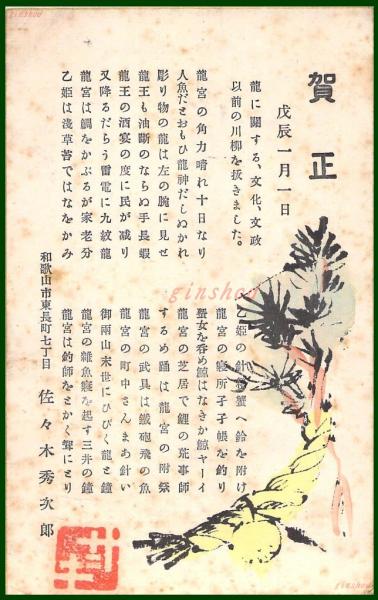 賀正
戊辰一月一日
龍に關する、文化、文政
以前の川柳を抜きました。
龍宮の角力晴れ十日なり
人魚だとおもひ龍神だしぬかれ
彫り物の龍は左の腕に見せ
龍王も油斷のならぬ手長蝦
龍王の酒宴の度に民が減り
又降るだらう雷電に九紋龍
龍宮は鯛をかぶるが家老分
乙姫は淺草苔ではなをかみ
乙姫の針
蟹へ鈴を附け
龍宮の寢所孑孑帳を釣り
蜑女を呑め鯨はなきか鯨ヤーイ
龍宮の芝居で鯉の荒事師
するめ踊は龍宮の附祭
龍宮の武具は鐵砲飛の魚
龍宮の町中さんまあ針い
御雨山末世にひびく龍と鐘
龍宮の雜魚寢を起す三井の鐘
龍宮は釣師をとかく聟にとり
和歌山市東長町七丁目　佐々木秀次郎
ginshou
ginshou
ginshou
ginshou